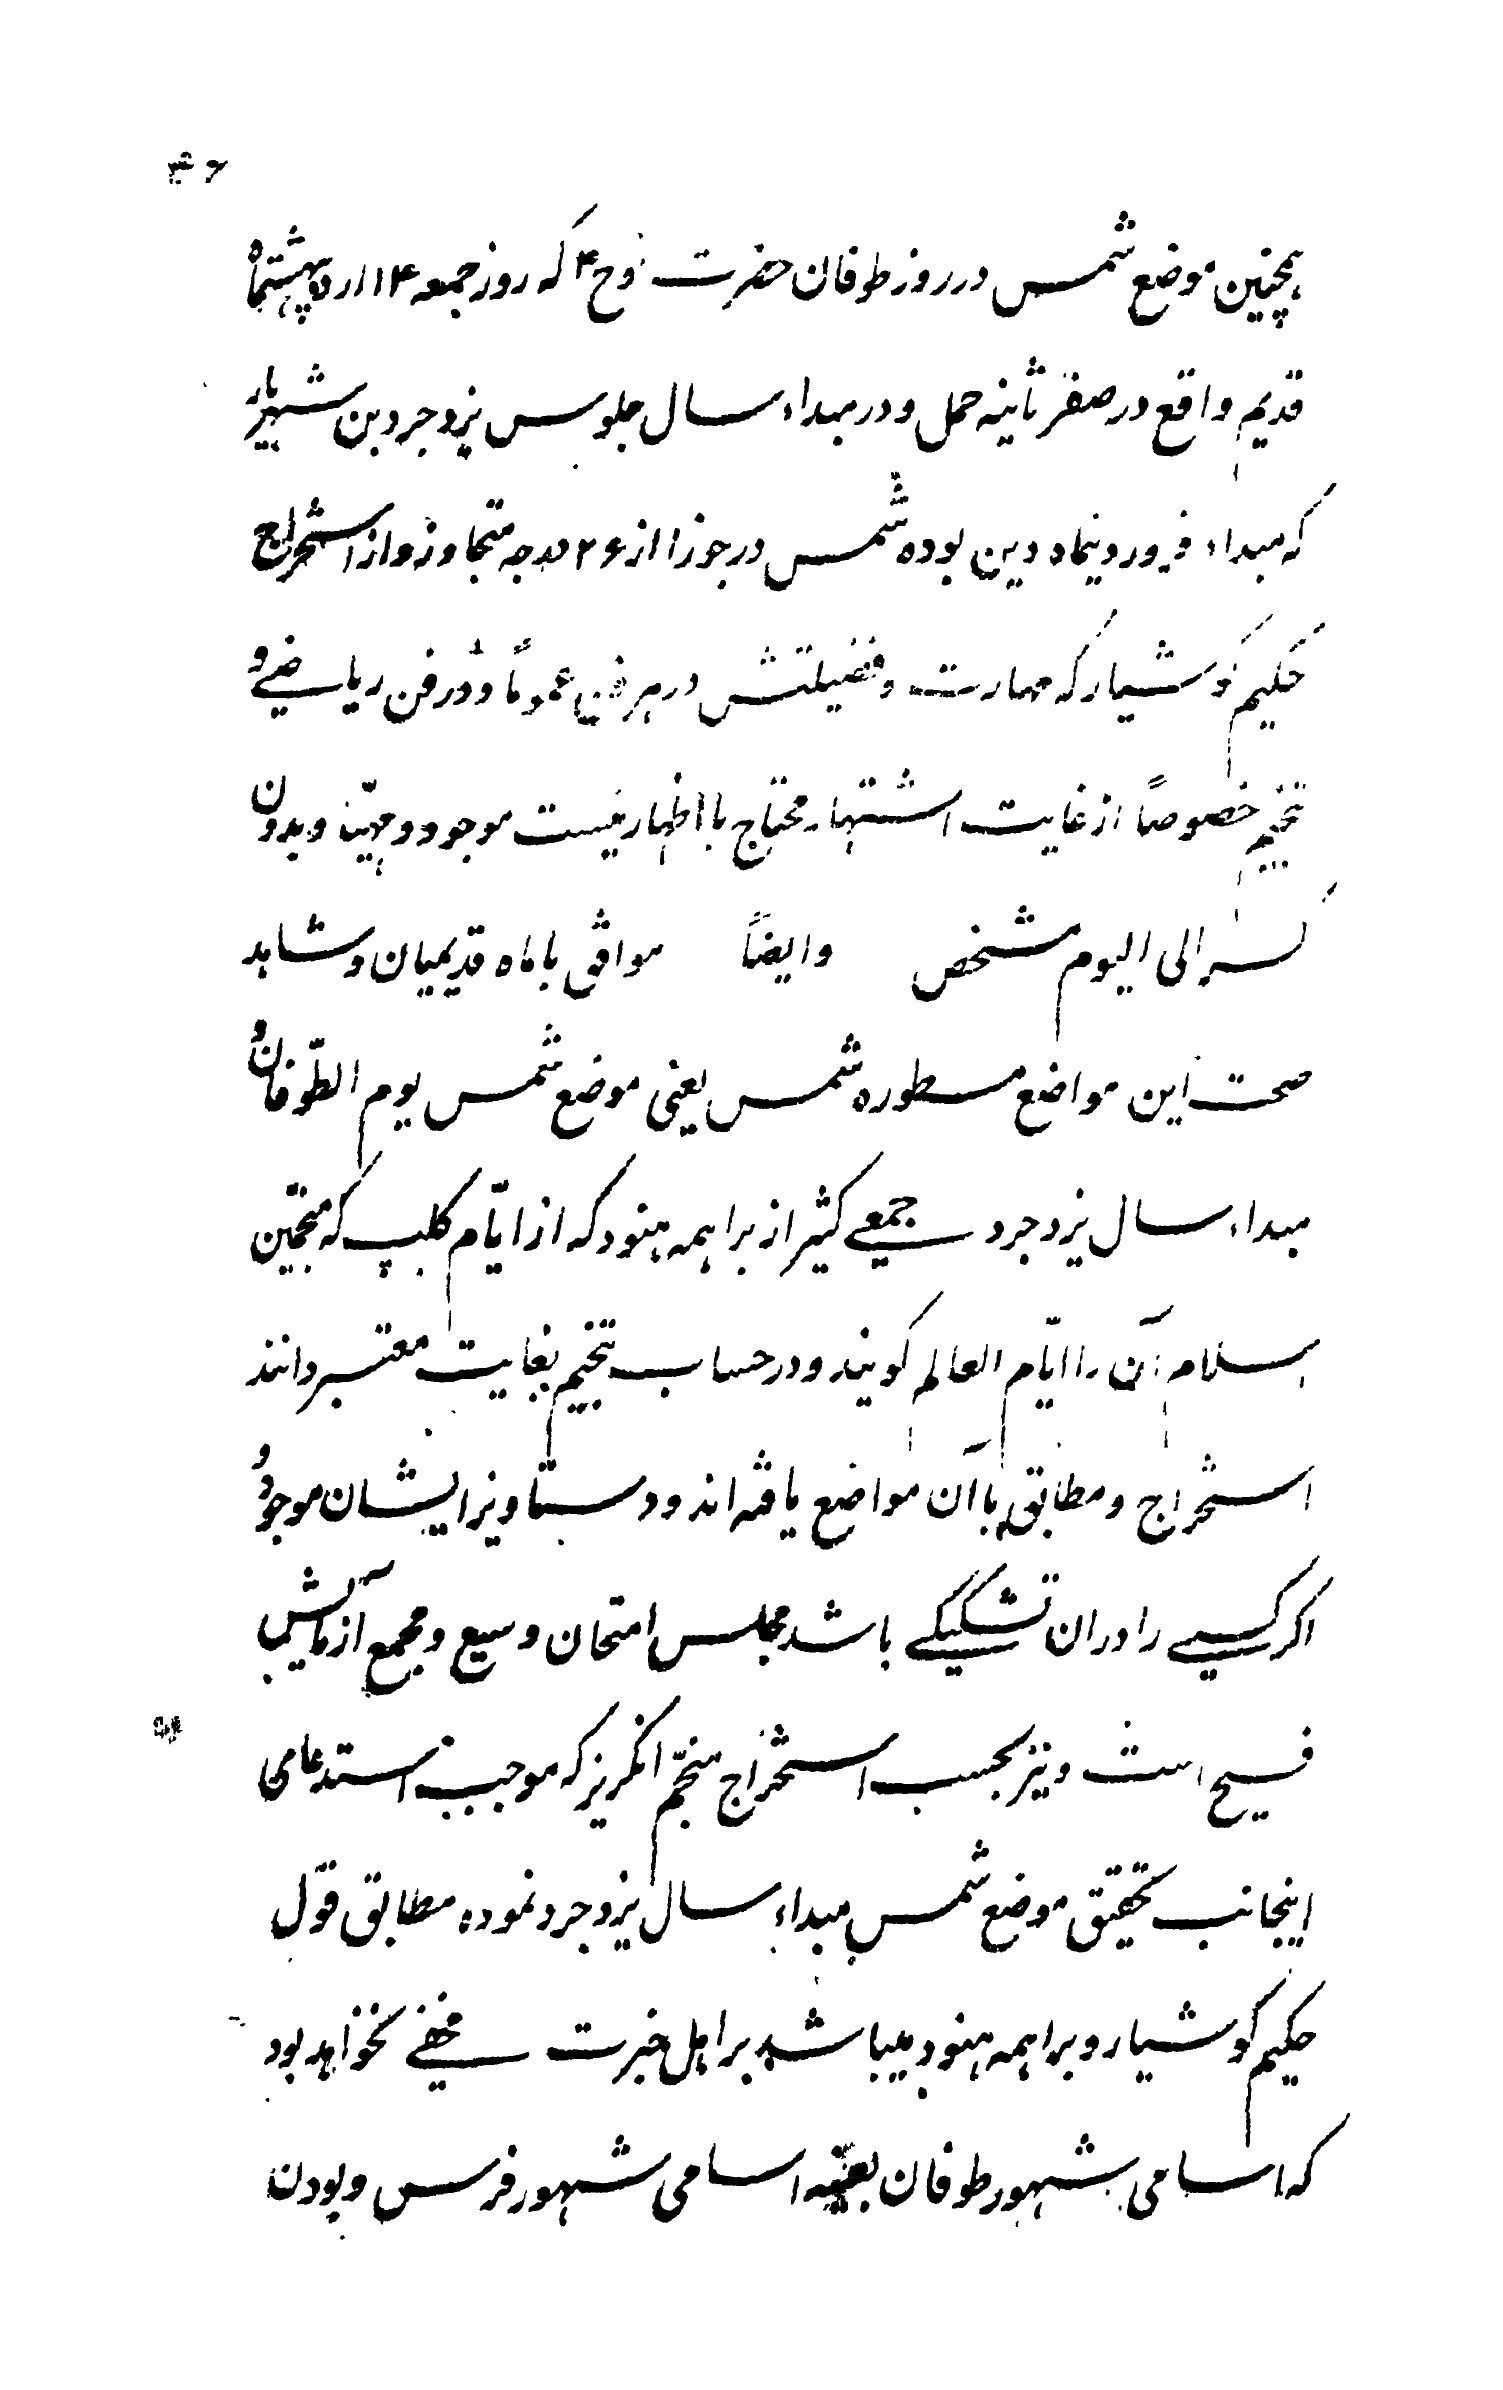 ۳۶
همچنین موضع شمس در روز طوفان حضرت نوح ۴ که روز جمعه ۱۴ اردیبهشتماه
قدیم واقع در صفر ثانیه حمل و در مبداء سال جلوس یزدجرد بن شهریار
که مبداء فروردینماه دین بوده شمس در جوزا از ۲۶ درجه متجاوز و از استخراج
حکیم کوشیار که مهارت و فضیلتش در هر فن عموماً و در فن ریاضی و
تنجیم خصوصاً از غایت اشتهار محتاج با اظهار نیست موجود و مهیّا و بدون
کسر الی الیوم مشخص وایضاً موافق با ماه قدیمیان و شاهد
صحت این مواضع مسطوره شمس یعنی موضع شمس یوم الطّوفان و
مبداء سال یزدجرد جمعی کثیر از براهمه هنود که از ایّام کلپ که منجّمین
اسلام آن را ایّام العالم کویند و در حساب تنجیم بغایت معتبر دانند
استخراج و مطابق با آن مواضع یافته اند و دستاویز ایشان موجود و
اکر کسی را در ان تشکیکی باشد مجلس امتحان وسیع و مجمع آزمایش
فسیح است و نیز بحسب استخراج منجّم انکریز که موجب استدعای
اینجانب تحقیق موضع شمس مبداء سال یزدجرد نموده مطابق قول
حکیم کوشیار و براهمه هنود میباشد بر اهل خبرت مخفی نخواهد بود
که اسامی شهور طوفان بعینه اسامی شهور فرس و بودن